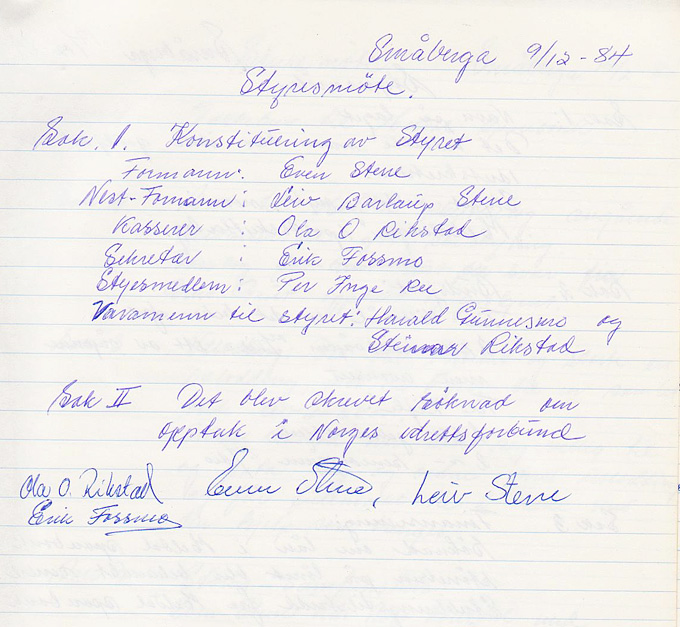 Småberga 9/12-84
Styresmöte.
Sak. 1. Konstituering av Styret
Formann: Even Stene
Nest-Fomann: Leiv Barlaup Stene
Kasserer : Ola O Rikstad
Sekretar : Erik Fossmo
Styesmedlem: Per Inge Ree
Varamenn til styret: Harald Gunnesmo og
Steinar Rikstad
Sak II Det blev skrevet söknad om
opptak i Norges idrettsforbund
Ola O. Rikstad Even Stene, Leiv Stene
Erik Fossmo